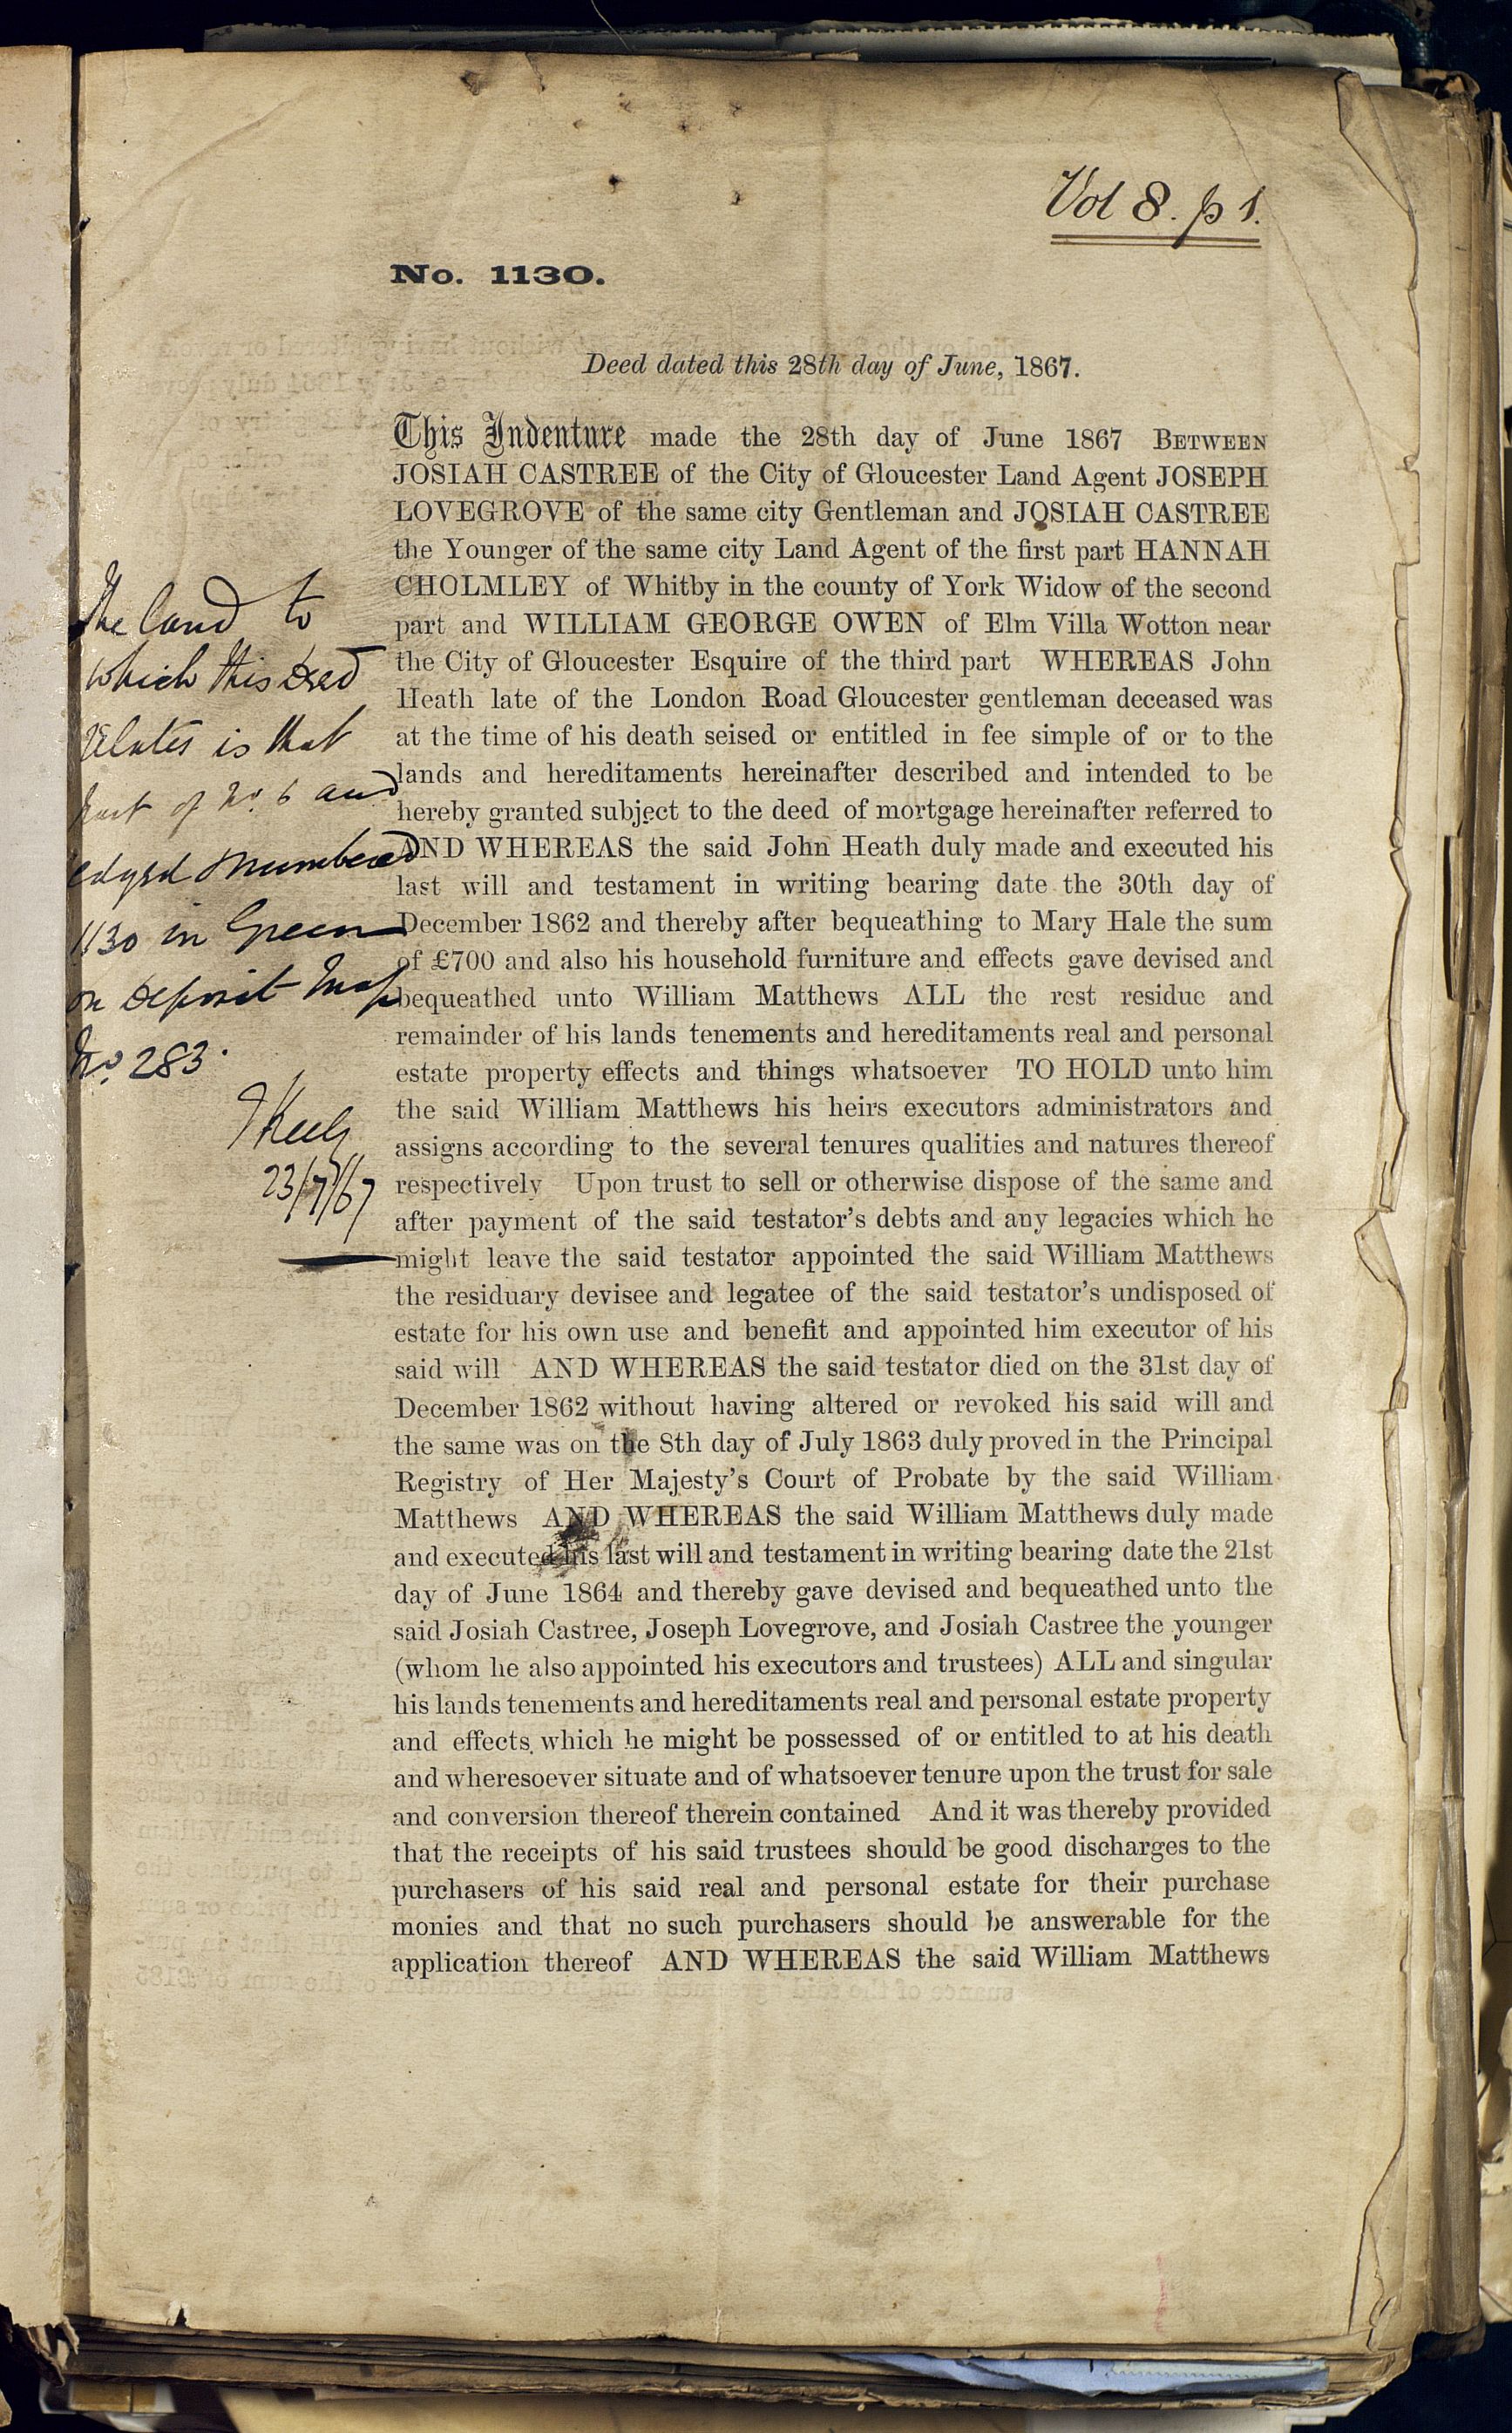 Vol 8. p 1.
No. 1130.
Deed dated this 28th day of June, 1867.
This Indenture made the 28th day of June 1867 BETWEEN
JOSIAH CASTREE of the City of Gloucester Land Agent JOSEPH
LOVEGROVE of the same city Gentleman and JOSIAH CASTREE
the Younger of the same city Land Agent of the first part HANNAH
CHOLMLEY of Whitby in the county of York Widow of the second
part and WILLIAM GEORGE OWEN of Elm Villa Wotton near
the City of Gloucester Esquire of the third part WHEREAS John
Heath late of the London Road Gloucester gentleman deceased was
at the time of his death seised or entitled in fee simple of or to the
lands and hereditaments hereinafter described and intended to be
hereby granted subject to the deed of mortgage hereinafter referred to
AND WHEREAS the said John Heath duly made and executed his
last will and testament in writing bearing date the 30th day of
December 1862 and thereby after bequeathing to Mary Hale the sum
of £700 and also his household furniture and effects gave devised and
bequeathed unto William Matthews ALL the rest residue and
remainder of his lands tenements and hereditaments real and personal
estate property effects and things whatsoever TO HOLD unto him
the said William Matthews his heirs executors administrators and
assigns according to the several tenures qualities and natures thereof
respectively Upon trust to sell or otherwise dispose of the same and
after payment of the said testator's debts and any legacies which he
might leave the said testator appointed the said William Matthews
the residuary devisee and legatee of the said testator's undisposed of
estate for his own use and benefit and appointed him executor of his
said will AND WHEREAS the said testator died on the 31st day of
December 1862 without having altered or revoked his said will and
the same was on the 8th day of July 1863 duly proved in the Principal
Registry of Her Majesty's Court of Probate by the said William
Matthews AND WHEREAS the said William Matthews duly made
and executed his last will and testament in writing bearing date the 21st
day of June 1864 and thereby gave devised and bequeathed unto the
said Josiah Castree, Joseph Lovegrove, and Josiah Castree the younger
(whom he also appointed his executors and trustees) ALL and singular
his lands tenements and hereditaments real and personal estate property
and effects which he might be possessed of or entitled to at his death
and wheresoever situate and of whatsoever tenure upon the trust for sale
and conversion thereof therein contained And it was thereby provided
that the receipts of his said trustees should be good discharges to the
purchasers of his said real and personal estate for their purchase
monies and that no such purchasers should be answerable for the
application thereof AND WHEREAS the said William Matthews
The land to
which this Deed
relates is that
part of No. 6 and
edged & numbered
1130 in Green
on Deposit Map
No. 283.
23/7/67